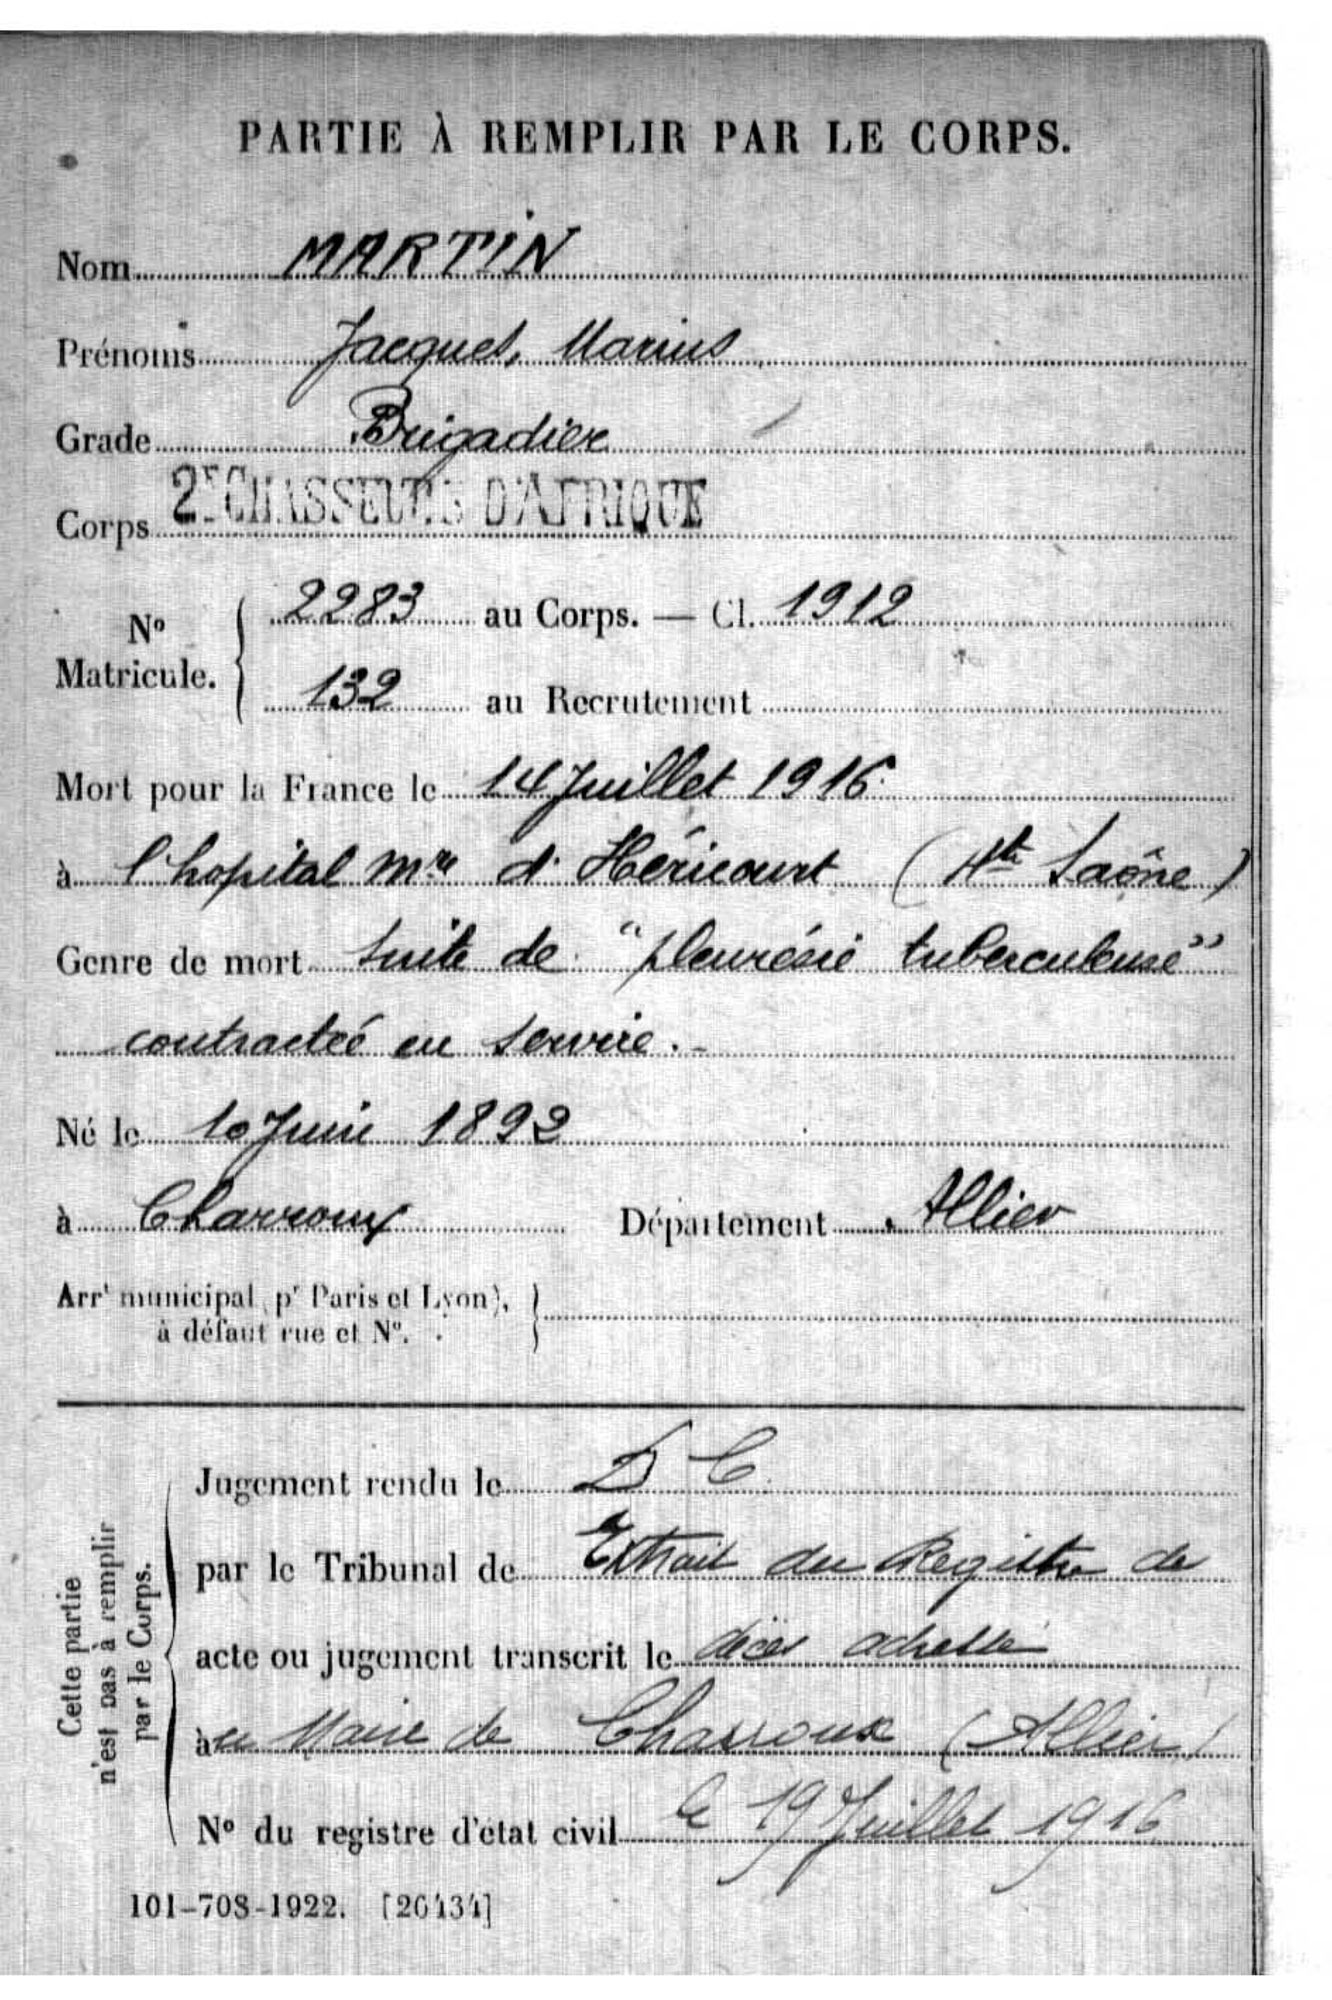 PARTIE À REMPLIR PAR LE CORPS.
Nom MARTIN
Prénoms Jacques, Marius
Grade Brigadier
Corps 2e CHASSEURS D'AFRIQUE
No Matricule. 2283 au Corps. — Cl. 1912
132 au Recrutement
Mort pour la France le 14 Juillet 1916
à l'hopital mre d'Héricourt (Hte Saône)
Genre de mort suite de "pleurésie tuberculeuse"
contractée en service.
Né le 10 Juin 1892
à Charroux Département Allier
Arrt municipal (pr Paris et Lyon),
à défaut rue et No.
Cette partie
n'est pas à remplir
par le Corps.
Jugement rendu le D C
par le Tribunal de Extrait du Registre de
acte ou jugement transcrit le décès adressé
à au Maire de Charroux (Allier)
No du registre d'état civil le 19 Juillet 1916
101-708-1922. [26434]